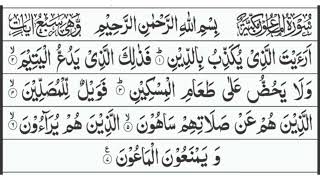 سُوْرَةُ الْمَاعُوْنِ مَكِّيَّةٌ بِسْمِ اللّٰهِ الرَّحْمٰنِ الرَّحِيْمِ وَهِيَ سَبْعُ اٰيَاتٍ
اَرَءَيْتَ الَّذِىْ يُكَذِّبُ بِالدِّيْنِ ۝۱ فَذٰلِكَ الَّذِىْ يَدُعُّ الْيَتِيْمَ ۝۲
وَلَا يَحُضُّ عَلٰى طَعَامِ الْمِسْكِيْنِ ۝۳ فَوَيْلٌ لِّلْمُصَلِّيْنَ ۝۴
الَّذِيْنَ هُمْ عَنْ صَلَاتِهِمْ سَاهُوْنَ ۝۵ الَّذِيْنَ هُمْ يُرَآءُوْنَ ۝۶
وَ يَمْنَعُوْنَ الْمَاعُوْنَ ۝۷